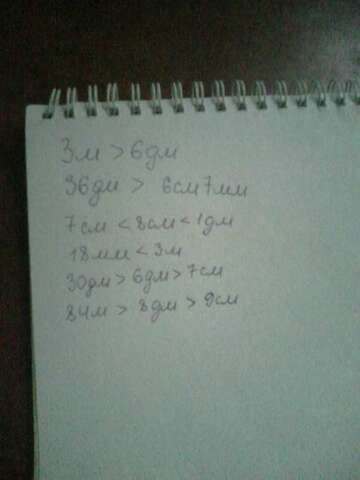 3м > 6дм
36дм > 6см7мм
7см < 8см < 1дм
18мм < 3м
30дм > 6дм > 7см
84м > 8дм > 9см